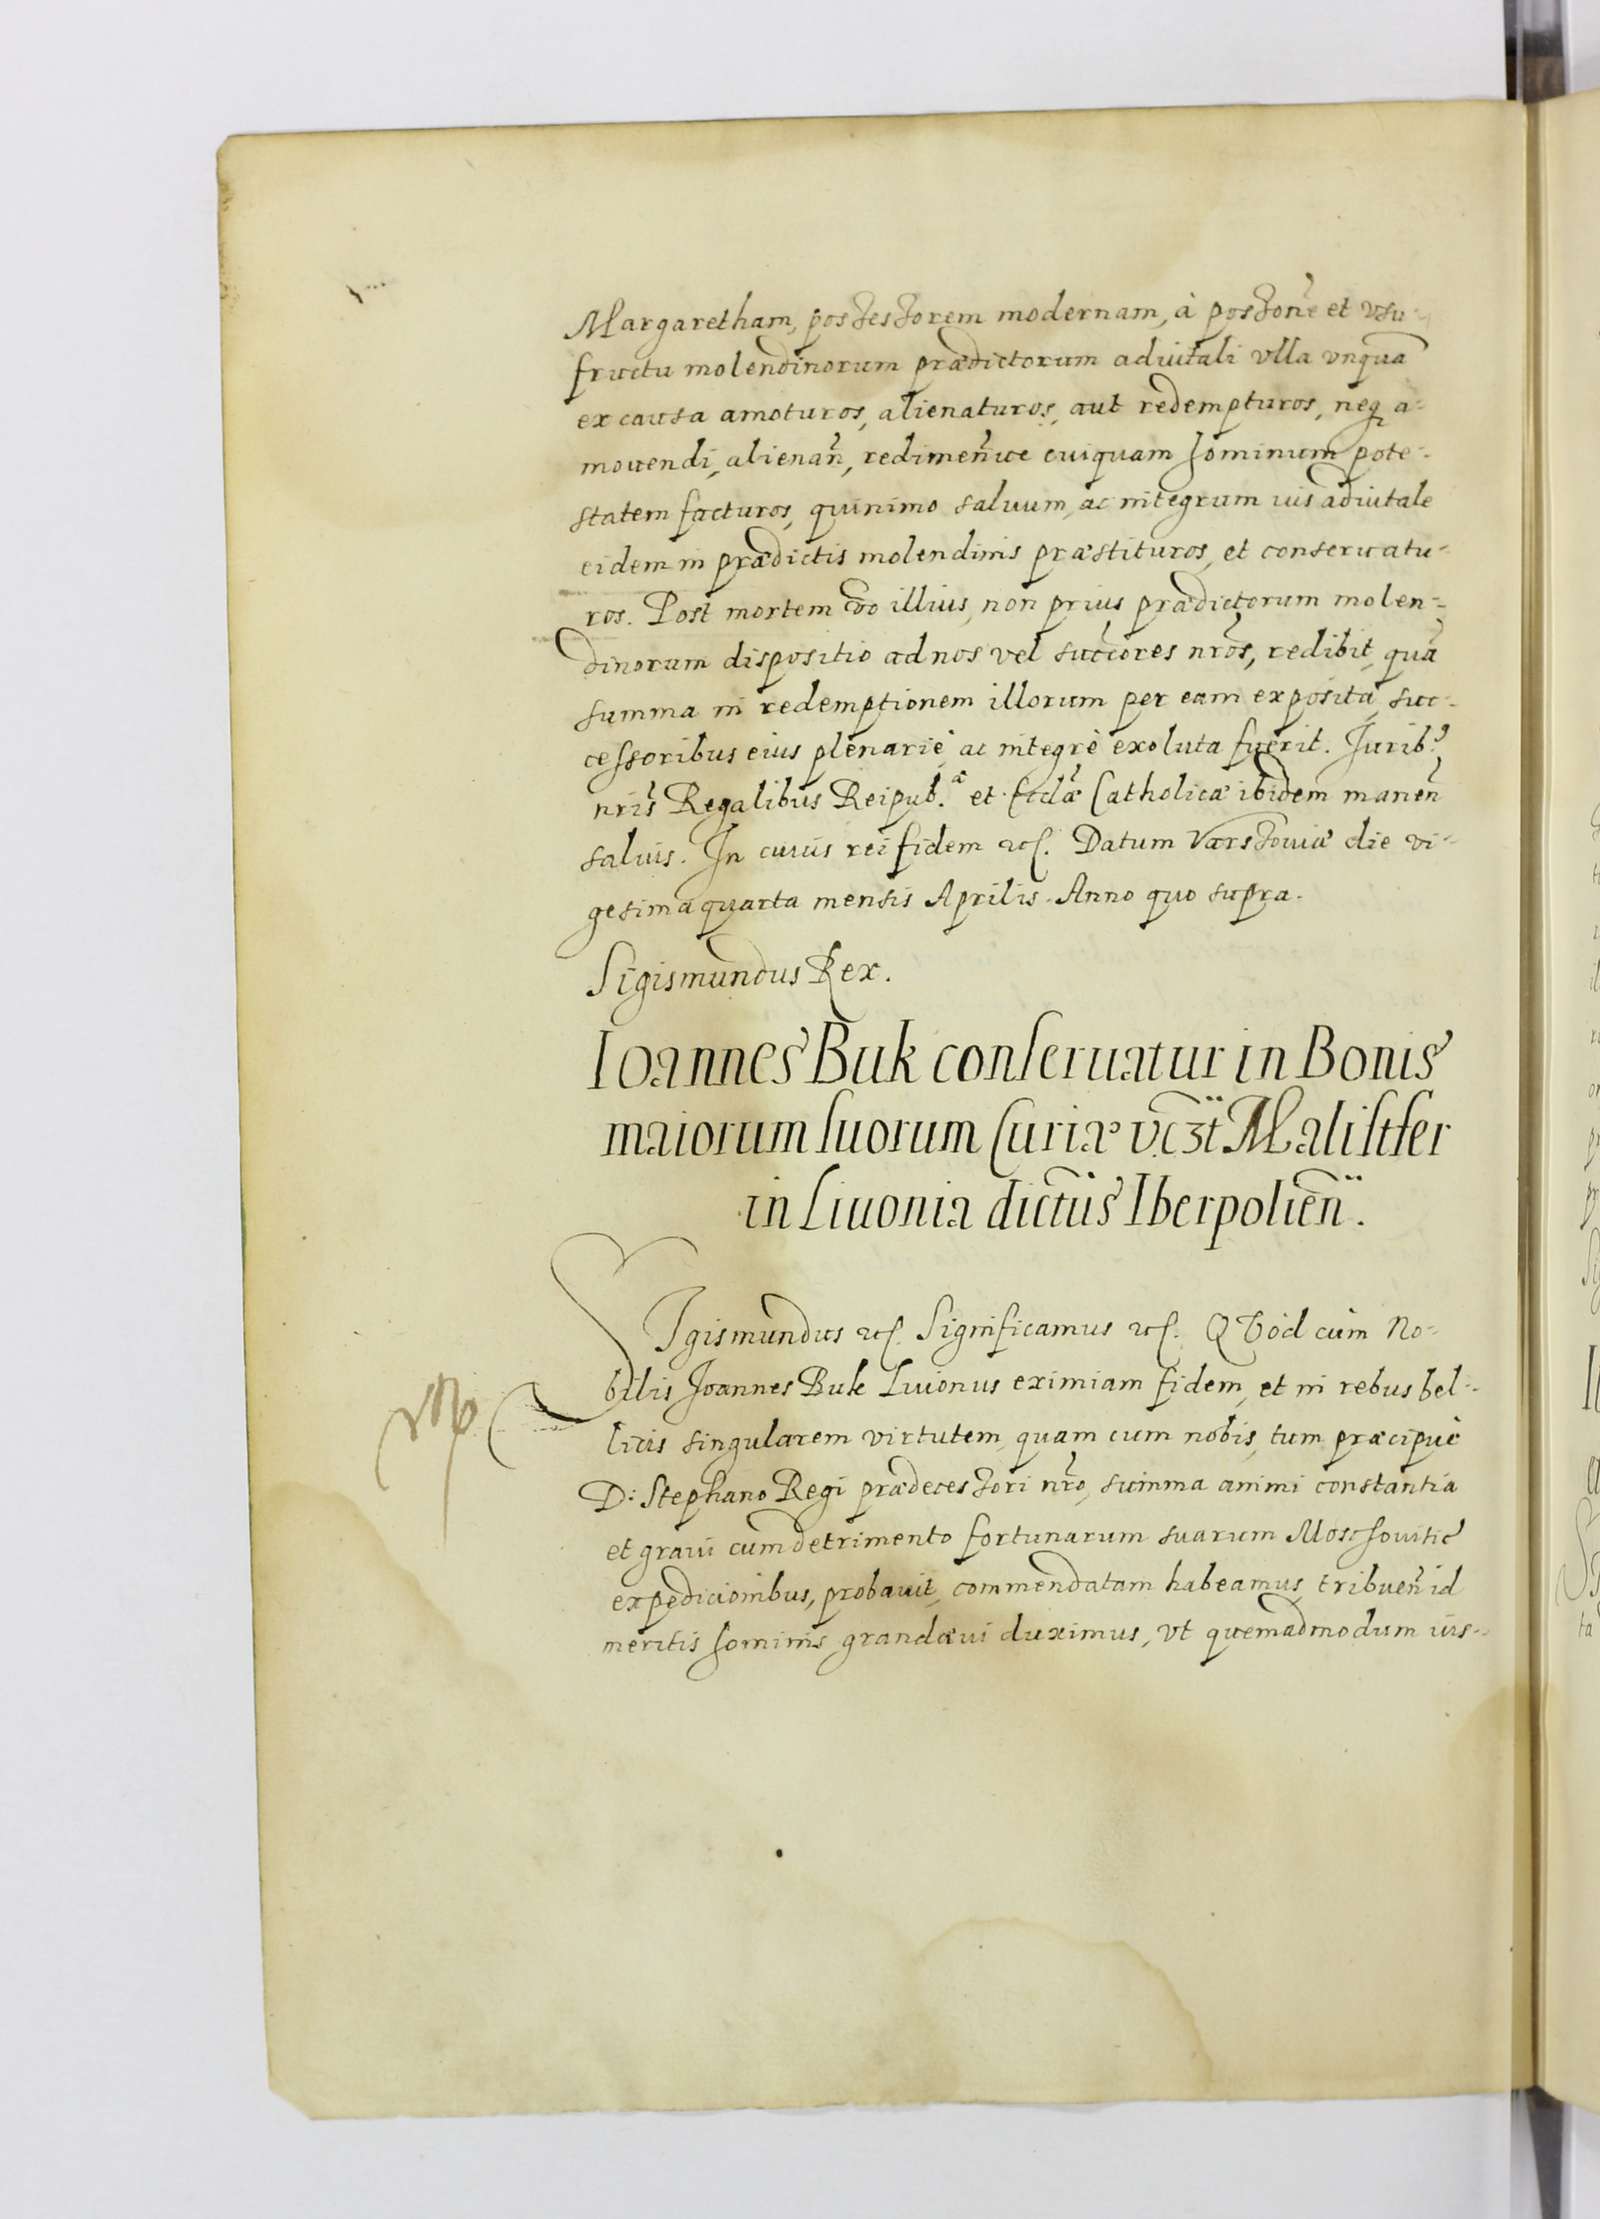 Margaretham, possessorem modernam, à possone et vsu-
fructu molendinorum prædictorum aduitali vlla vnquã
ex causa amoturos, alienaturos, aut redempturos, neq a-
mouendi, alienañ, redimeñue cuiquam hominum pote-
statem facturos, quinimo saluum, ac integrum ius aduitale
eidem in prædictis molendinis præstituros, et conseruatu-
ros. Post mortem v̄o illius, non prius prædictorum molen-
dinorum dispositio ad nos vel succores nros, redibit, quã
summa in redemptionem illorum per eam exposita, suc-
cessoribus eius plenariè, ac integrè exoluta fuerit. Jurib9
nris Regalibus Reipub.æ et Ecclæ Catholicæ ibidem maneñ
saluis. In cuius rei fidem etc. Datum Varssouiæ die vi-
gesima quarta mensis Aprilis. Anno quo supra.
Sigismundus Rex.
Ioannes Buk conseruatur in Bonis
maiorum suorum Curiæ Malistfer
in Liuonia dictus Iberpolieñ.
SIgismundus etc. Significamus etc. QVòd cùm No-
bilis Joannes Buk Liuonus eximiam fidem, et in rebus bel-
licis singularem virtutem, quam cum nobis, tum præcipuè
D: Stephano Regi prædecessori nro, summa animi constantia
et graui cum detrimento fortunarum suarum Moschouitic
expedicionibus, probauit, commendatam habeamus, tribueñ id
meritis hominis grandæui duximus, vt quemadmodum ius-